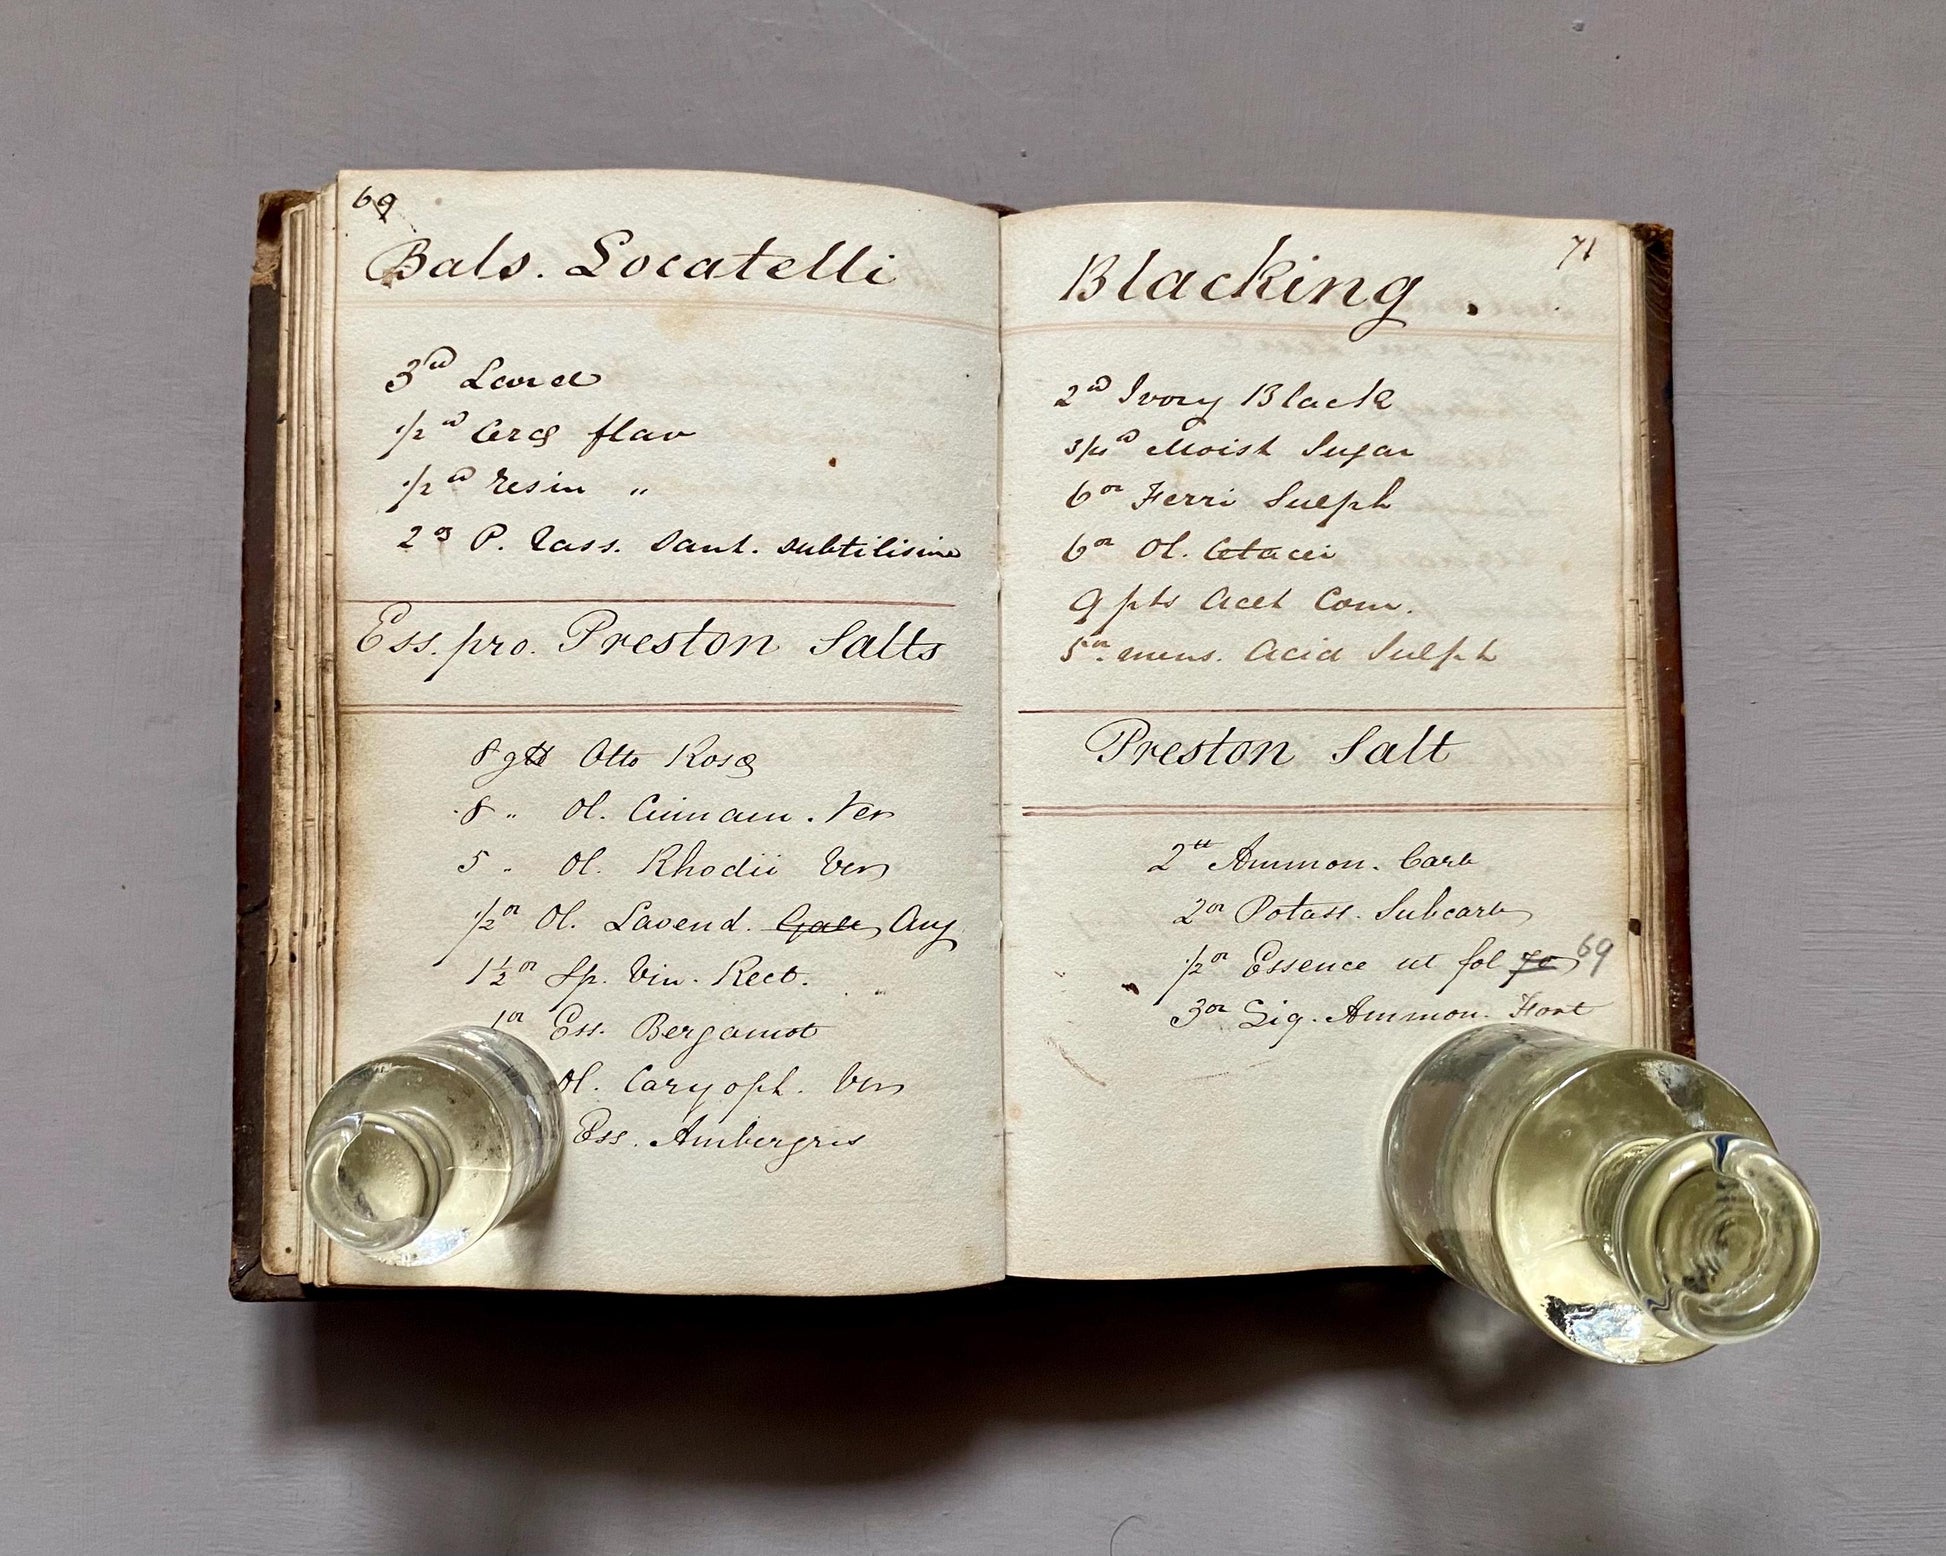 69
Bals. Locatelli
3 Lard
1/2 Cerae flav
1/2 Resin "
2 P. Rass. Sant. subtilisime
Ess. pro. Preston Salts
8 gtt Otto Rosae
8 " Ol. Cinnam. Ver
5 " Ol. Rhodii Ver
1/2 oz Ol. Lavend. Ang
1 1/2 oz Sp. Vin. Rect.
1 oz Ess. Bergamot
Ol. Caryoph. Ver
Ess. Ambergris
71
Blacking.
2 Ivory Black
3/4 Moist Sugar
6 oz Ferri Sulph
6 oz Ol. Cetacei
9 pts Acet Com.
5 oz. mens. Acid Sulph
Preston Salt
2 tt Ammon. Carb
2 oz Potass. Subcarb
1/2 oz Essence ut fol 70 69
3 oz Liq. Ammon. Fort